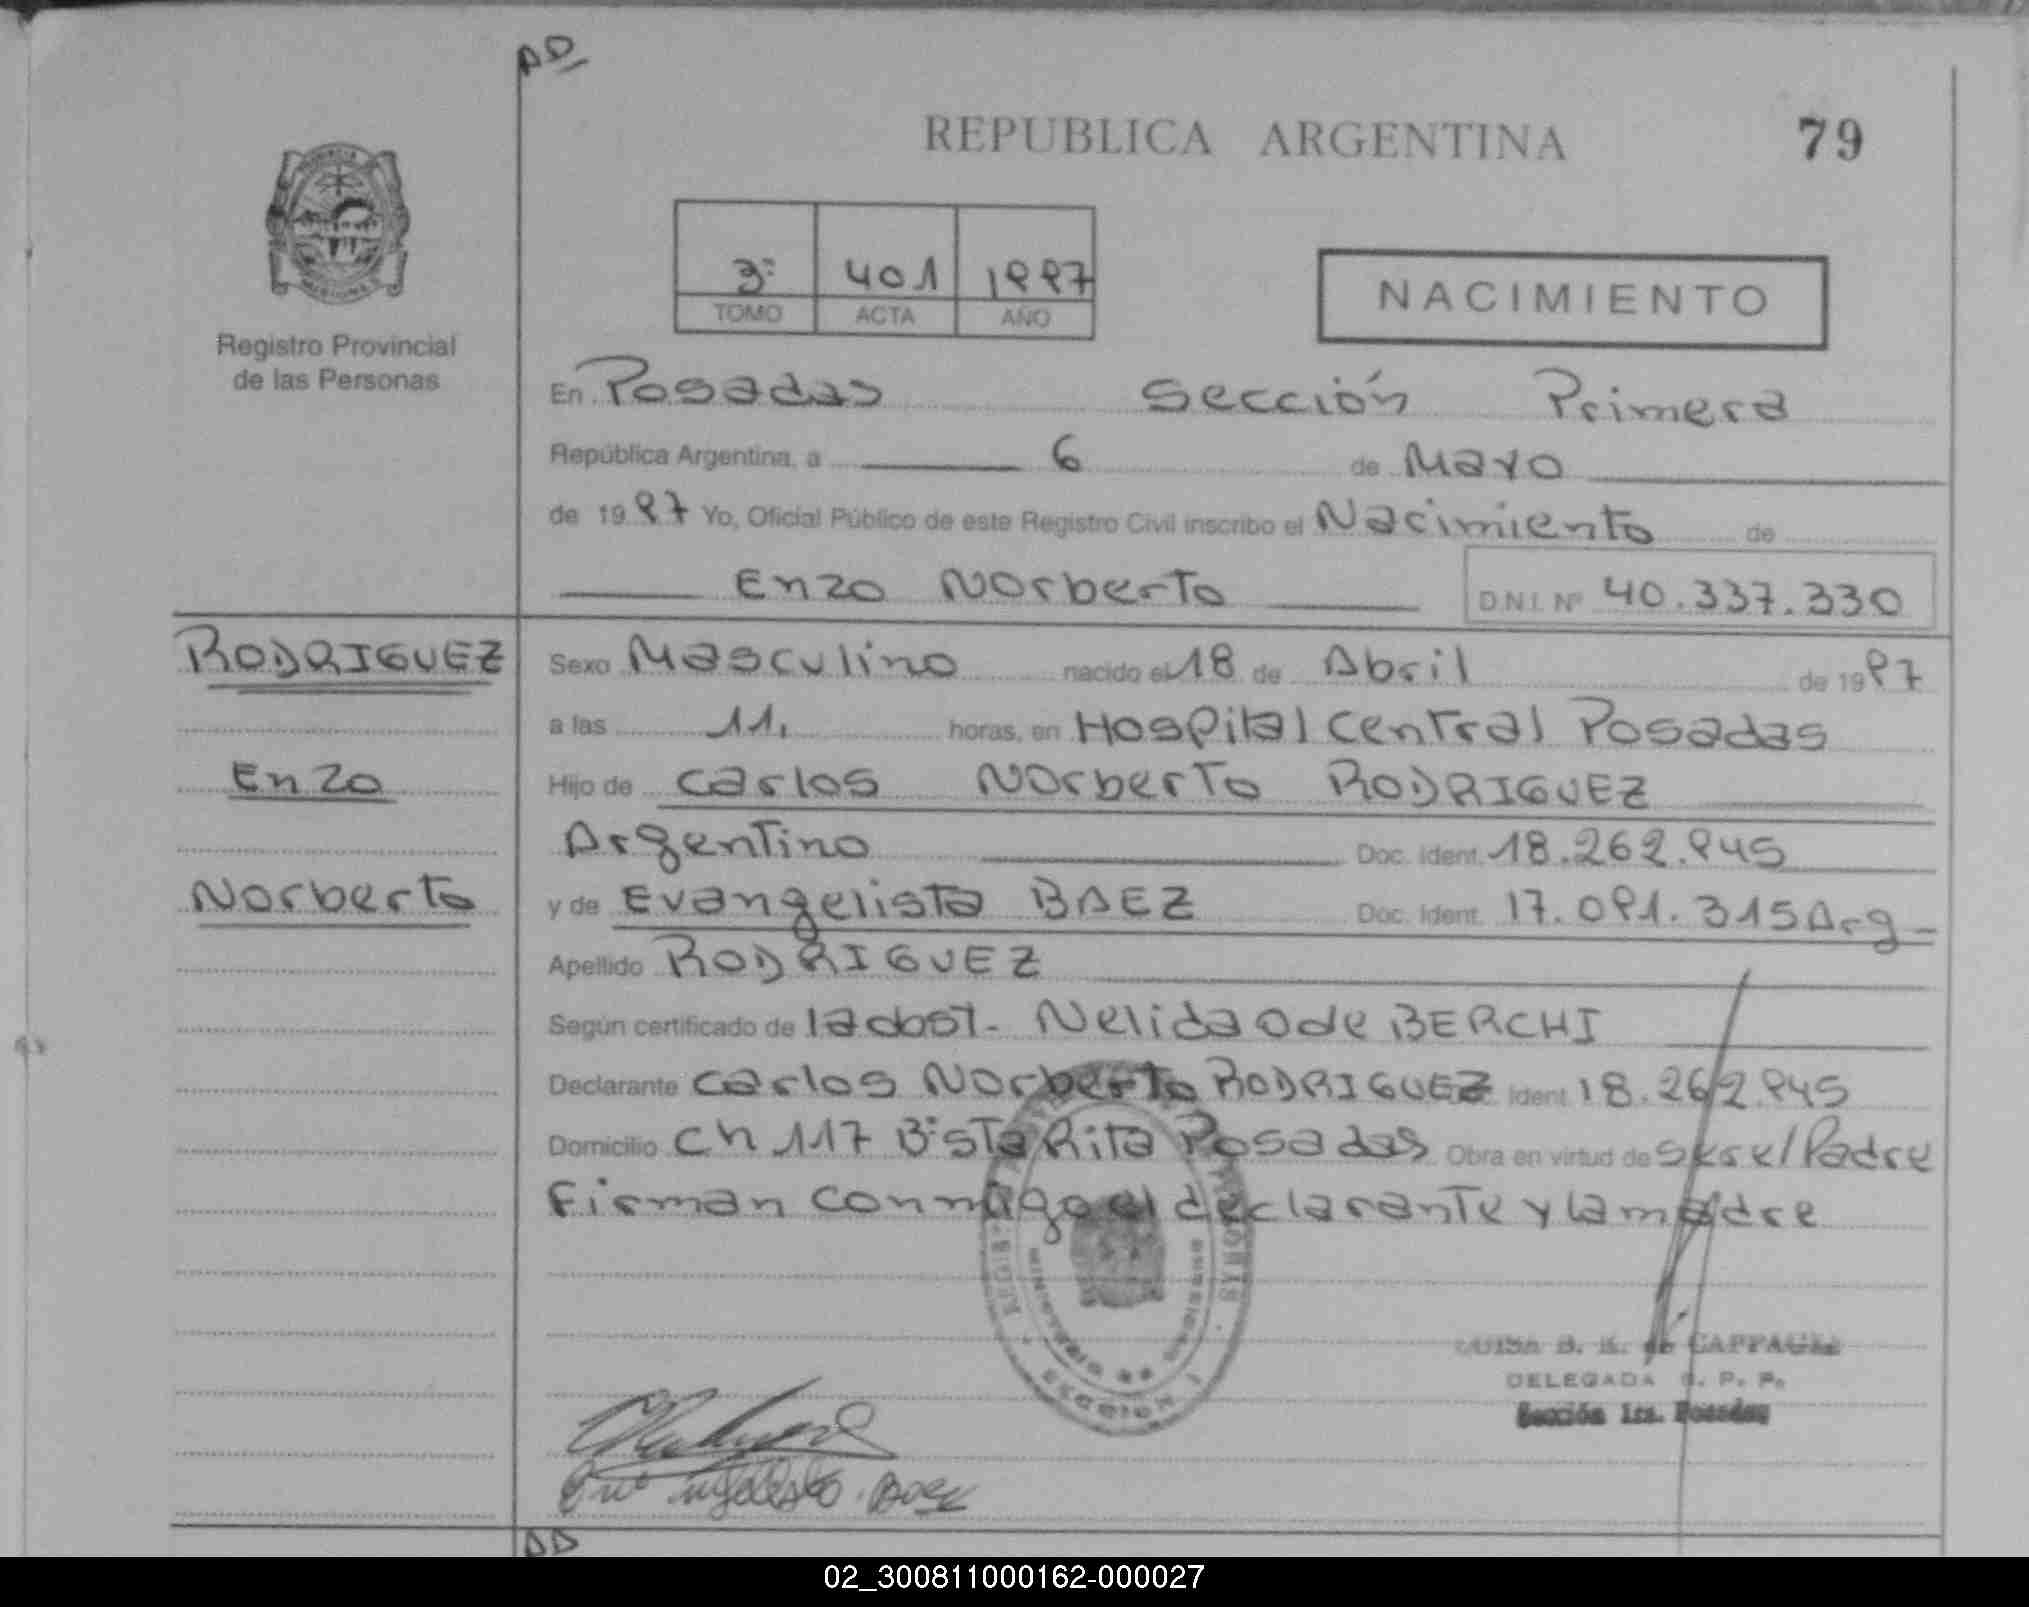 AD
REPUBLICA ARGENTINA
79
3º 401 1997
TOMO ACTA AÑO
NACIMIENTO
Registro Provincial
de las Personas
En Posadas Sección Primera
República Argentina, a 6 de Mayo
de 1997 Yo, Oficial Público de este Registro Civil inscribo el Nacimiento de
Enzo Norberto D.N.I. Nº 40.337.330
RODRIGUEZ
Enzo
Norberto
Sexo Masculino nacido el 18 de Abril de 1997
a las 11, horas, en Hospital Central Posadas
Hijo de Carlos Norberto RODRIGUEZ
Argentino Doc. Ident. 18.262.945
y de Evangelista BAEZ Doc. Ident. 17.091.315 Arg
Apellido RODRIGUEZ
Según certificado de la obst. Nelida O de BERCHI
Declarante Carlos Norberto RODRIGUEZ Ident. 18.262.945
Domicilio Ch 117 Bº Sta Rita Posadas Obra en virtud de ser el Padre
Firman conmigo el declarante y la madre
LUISA B. K. de
DELEGADA R. P. P.
Sección 1ra. Posadas
SECCION 1
AD
02_300811000162-000027